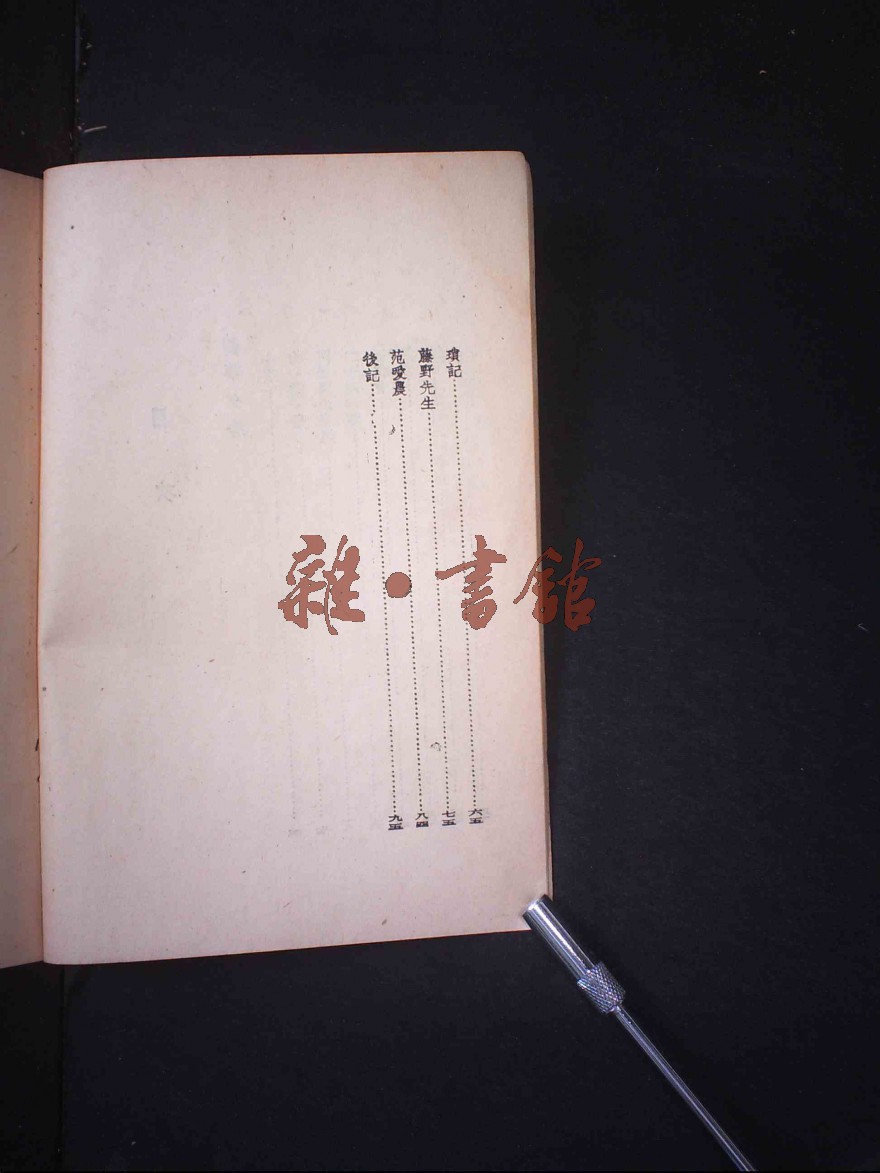 瑣記……六五
藤野先生……七五
范愛農……八四
後記……九五
雜•書館